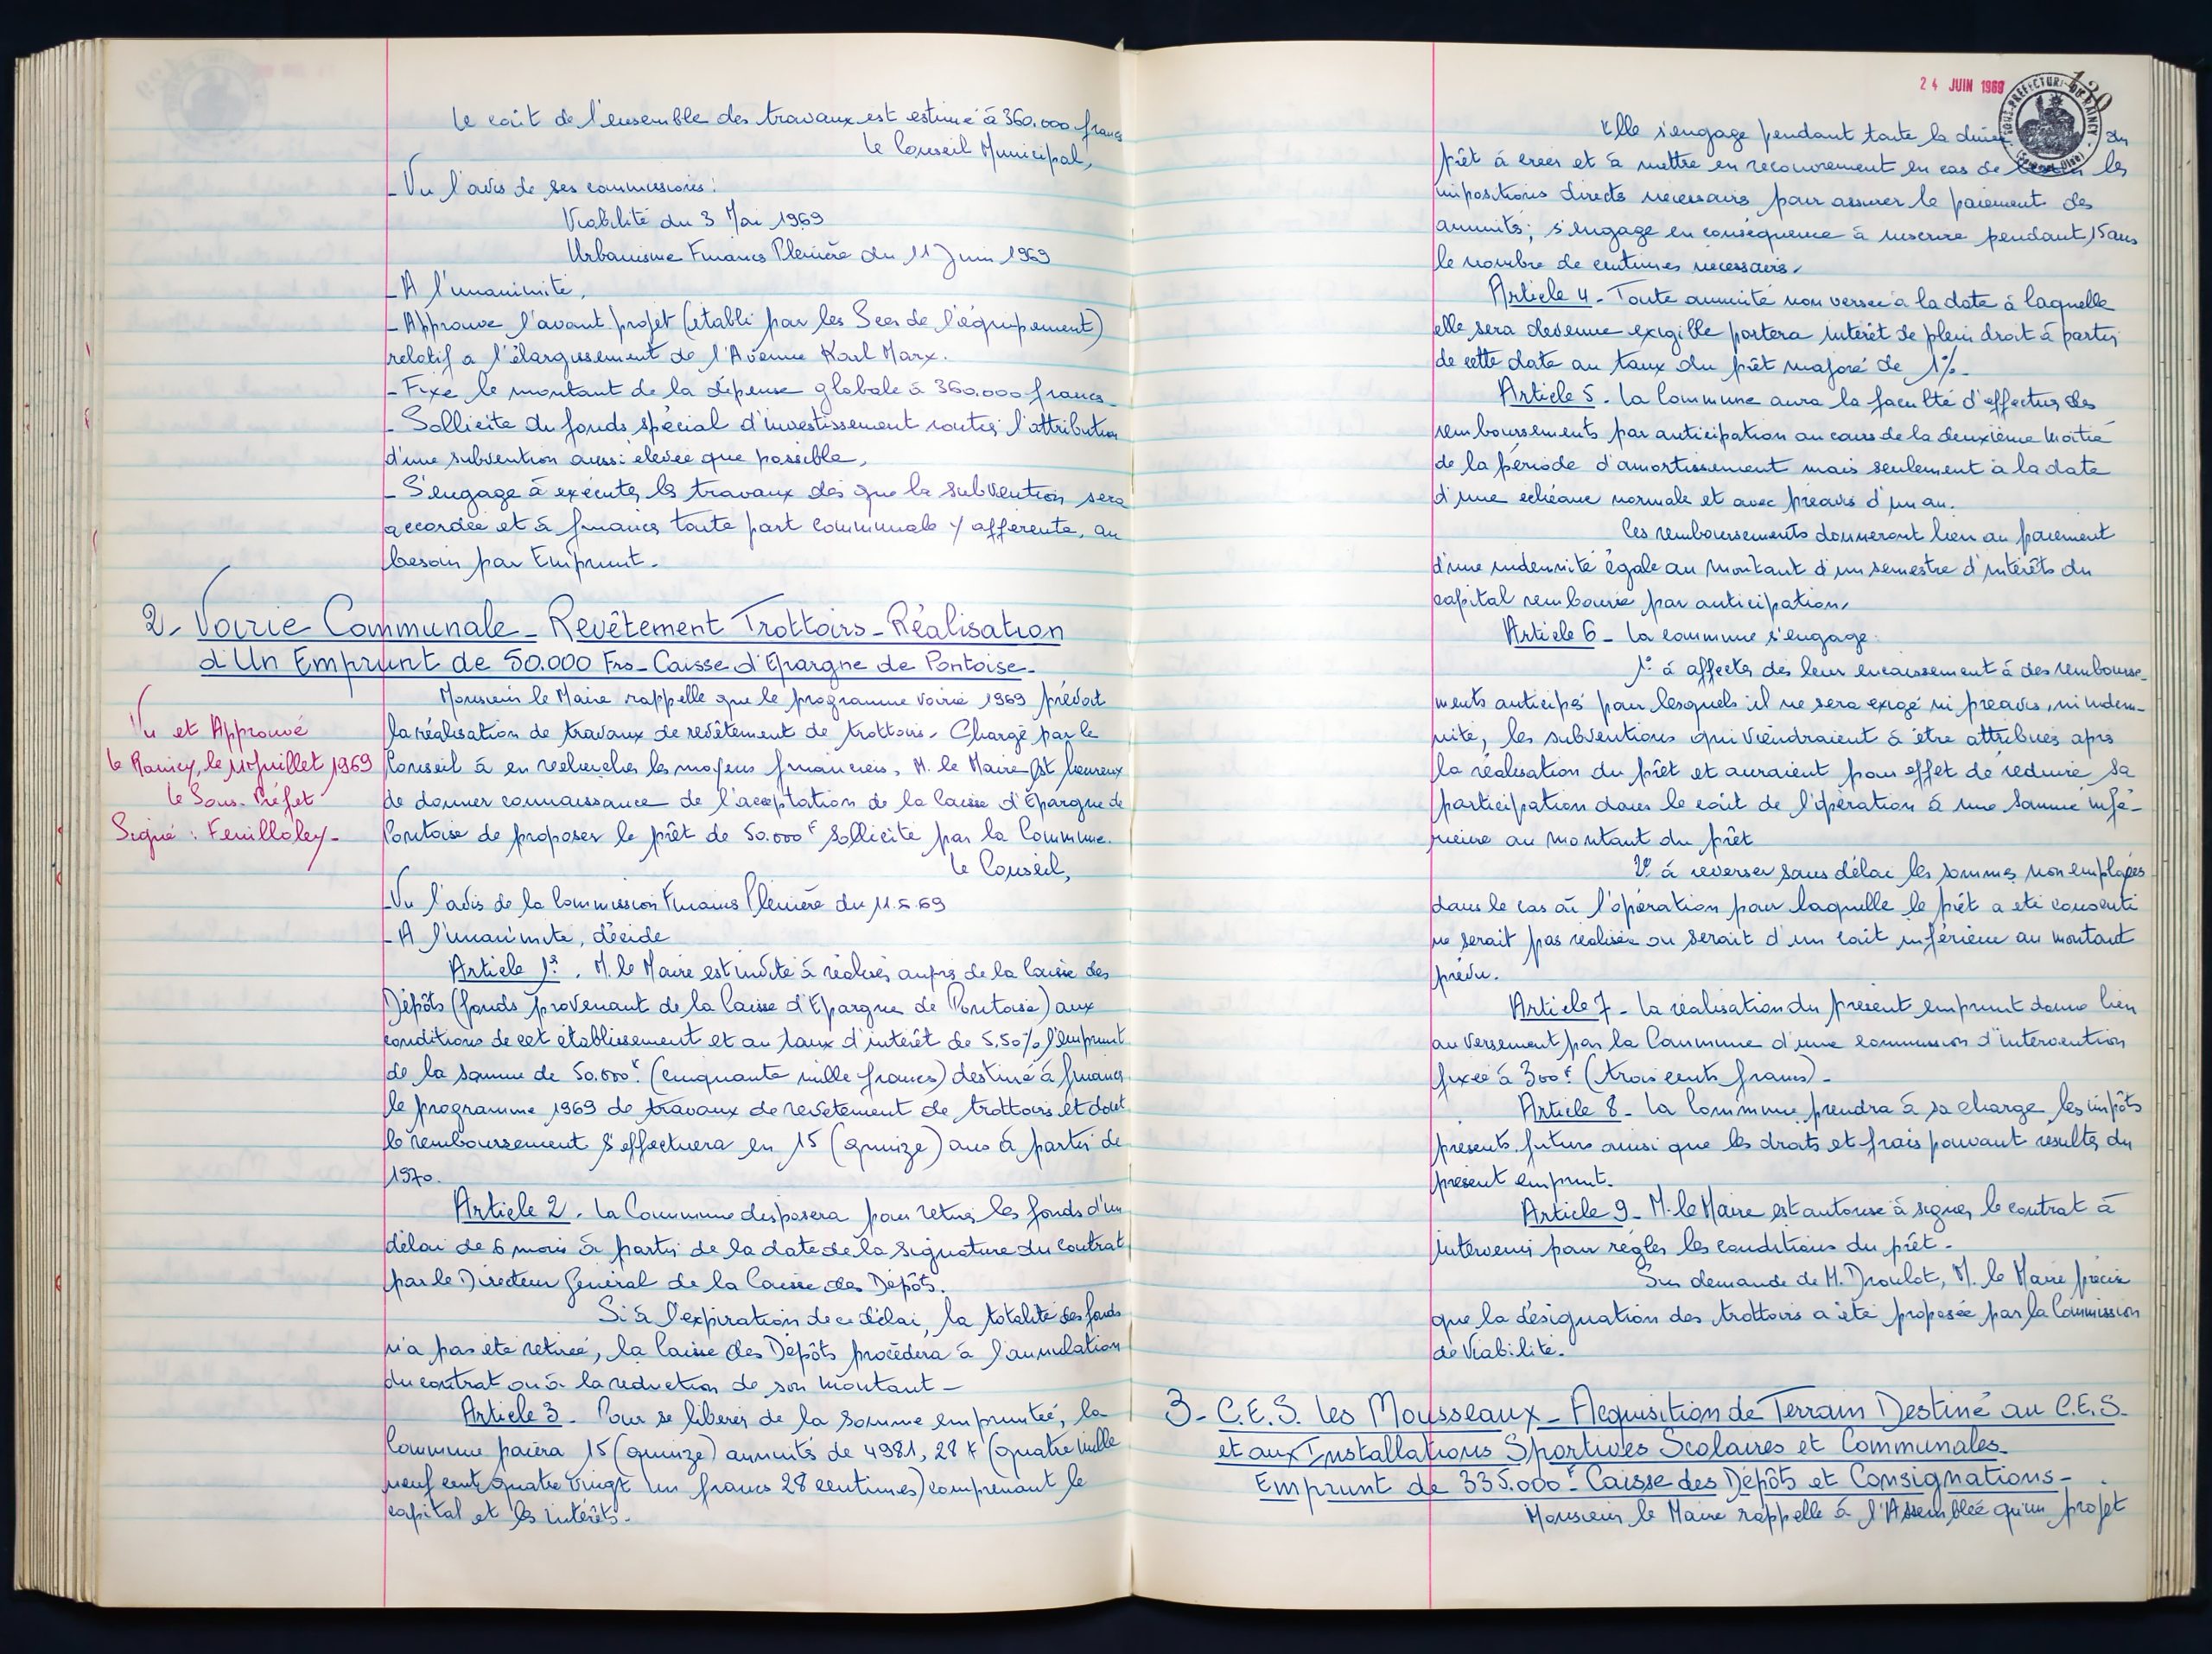 Le coût de l'ensemble des travaux est estimé à 360.000 francs
Le Conseil Municipal,
- Vu l'avis de ses commissions :
Viabilité du 3 Mai 1969
Urbanisme Finances Plénière du 11 Juin 1969
- A l'unanimité,
- Approuve l'avant projet (établi par les Sces de l'équipement)
relatif a l'élargissement de l'Avenue Karl Marx.
- Fixe le montant de la dépense globale à 360.000 francs.
- Sollicite du fonds spécial d'investissement routier l'attribution
d'une subvention aussi élevée que possible,
- S'engage à exécuter les travaux dès que la subvention sera
accordée et à financer toute part communale y afférente, au
besoin par Emprunt.
2- Voirie Communale - Revêtement Trottoirs - Réalisation
d'Un Emprunt de 50.000 Frs - Caisse d'Epargne de Pontoise.
Monsieur le Maire rappelle que le programme voirie 1969 prévoit
la réalisation de travaux de revêtement de trottoirs. Chargé par le
Conseil à en rechercher les moyens financiers, M. le Maire est heureux
de donner connaissance de l'acceptation de la Caisse d'Epargne de
Pontoise de proposer le prêt de 50.000 F sollicité par la Commune.
Le Conseil,
- Vu l'avis de la Commission Finances Plénière du 11.6.69
- A l'unanimité, décide
Article 1er. M. le Maire est invité à réaliser auprès de la Caisse des
Dépôts (fonds provenant de la Caisse d'Epargne de Pontoise) aux
conditions de cet établissement et au taux d'intérêt de 5,50% l'emprunt
de la somme de 50.000F. (cinquante mille francs) destiné à financer
le programme 1969 de travaux de revêtement de trottoirs et dont
le remboursement s'effectuera en 15 (quinze) ans à partir de
1970.
Article 2. La Commune disposera pour retirer les fonds d'un
délai de 6 mois à partir de la date de la signature du contrat
par le Directeur Général de la Caisse des Dépôts.
Si à l'expiration de ce délai, la totalité des fonds
n'a pas été retirée, la Caisse des Dépôts procèdera à l'annulation
du contrat ou à la réduction de son montant -
Article 3. Pour se libérer de la somme empruntée, la
Commune paiera 15 (quinze) annuités de 4981,28 F (quatre mille
neuf cent quatre vingt un francs 28 centimes) comprenant le
capital et les intérêts.
Vu et Approuvé
Le Raincy, le 10 Juillet 1969
Le Sous-Préfet
Signé : Feuilloley-
24 JUIN 1969
120
SOUS-PREFECTURE DU RAINCY
(Seine-et-Oise)
Elle s'engage pendant toute la durée du
prêt à créer et à mettre en recouvrement en cas de besoin les
impositions directes nécessaires pour assurer le paiement des
annuités; s'engage en conséquence à inscrire pendant 15 ans
le nombre de centimes nécessaires.
Article 4 - Toute annuité non versée à la date à laquelle
elle sera devenue exigible portera intérêt de plein droit à partir
de cette date au taux du prêt majoré de 1%.
Article 5. La Commune aura la faculté d'effectuer des
remboursements par anticipation au cours de la deuxième moitié
de la période d'amortissement mais seulement à la date
d'une échéance normale et avec préavis d'un an.
Ces remboursements donneront lieu au paiement
d'une indemnité égale au montant d'un semestre d'intérêts du
capital remboursé par anticipation.
Article 6 - La commune s'engage :
1° à affecter dès leur encaissement à des rembourse-
ments anticipés pour lesquels il ne sera exigé ni préavis, ni indem-
nité, les subventions qui viendraient à être attribuées après
la réalisation du prêt et auraient pour effet de réduire sa
participation dans le coût de l'opération à une somme infé-
rieure au montant du prêt
2° à reverser sans délai les sommes non employées
dans le cas où l'opération pour laquelle le prêt a été consenti
ne serait pas réalisée ou serait d'un coût inférieur au montant
prévu.
Article 7 - La réalisation du présent emprunt donne lieu
au versement par la Commune d'une commission d'intervention
fixée à 300F. (trois cents francs) -
Article 8 - La Commune prendra à sa charge les impôts
présents, futurs ainsi que les droits et frais pouvant résulter du
présent emprunt.
Article 9 - M. le Maire est autorisé à signer le contrat à
intervenir pour régler les conditions du prêt -
Sur demande de M. Droulot, M. le Maire précise
que la désignation des trottoirs a été proposée par la Commission
de Viabilité.
3- C.E.S. Les Mousseaux - Acquisition de Terrain Destiné au C.E.S.
et aux Installations Sportives Scolaires et Communales.
Emprunt de 335.000 F - Caisse des Dépôts et Consignations -
Monsieur le Maire rappelle à l'Assemblée qu'un projet